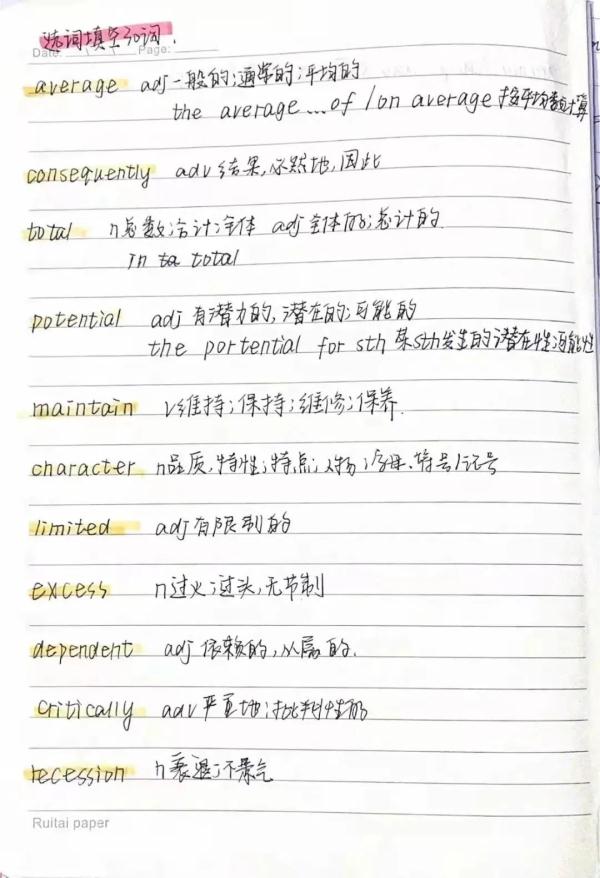 选词填空30词.
Date: Page:
average adj一般的;通常的;平均的
the average...of / on average 按平均数计算
consequently adv结果,必然地,因此
total n总数;合计;全体 adj全体的;总计的
in total
potential adj 有潜力的,潜在的;可能的
the portential for sth 某sth发生的潜在性;可能性
maintain v维持;保持;维修;保养.
character n品质,特性;特点;人物;字母、符号/记号
limited adj有限制的
excess n过火;过头,无节制
dependent adj 依赖的,从属的.
critically adv 严重地;批判性的
recession n衰退;不景气
Ruitai paper